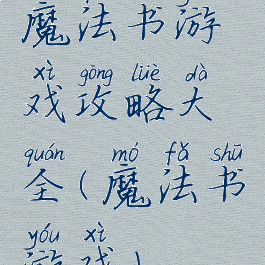 魔法书游
xì gōng lüè dà
戏攻略大
quán mó fǎ shū
全(魔法书
yóu xì
游戏)